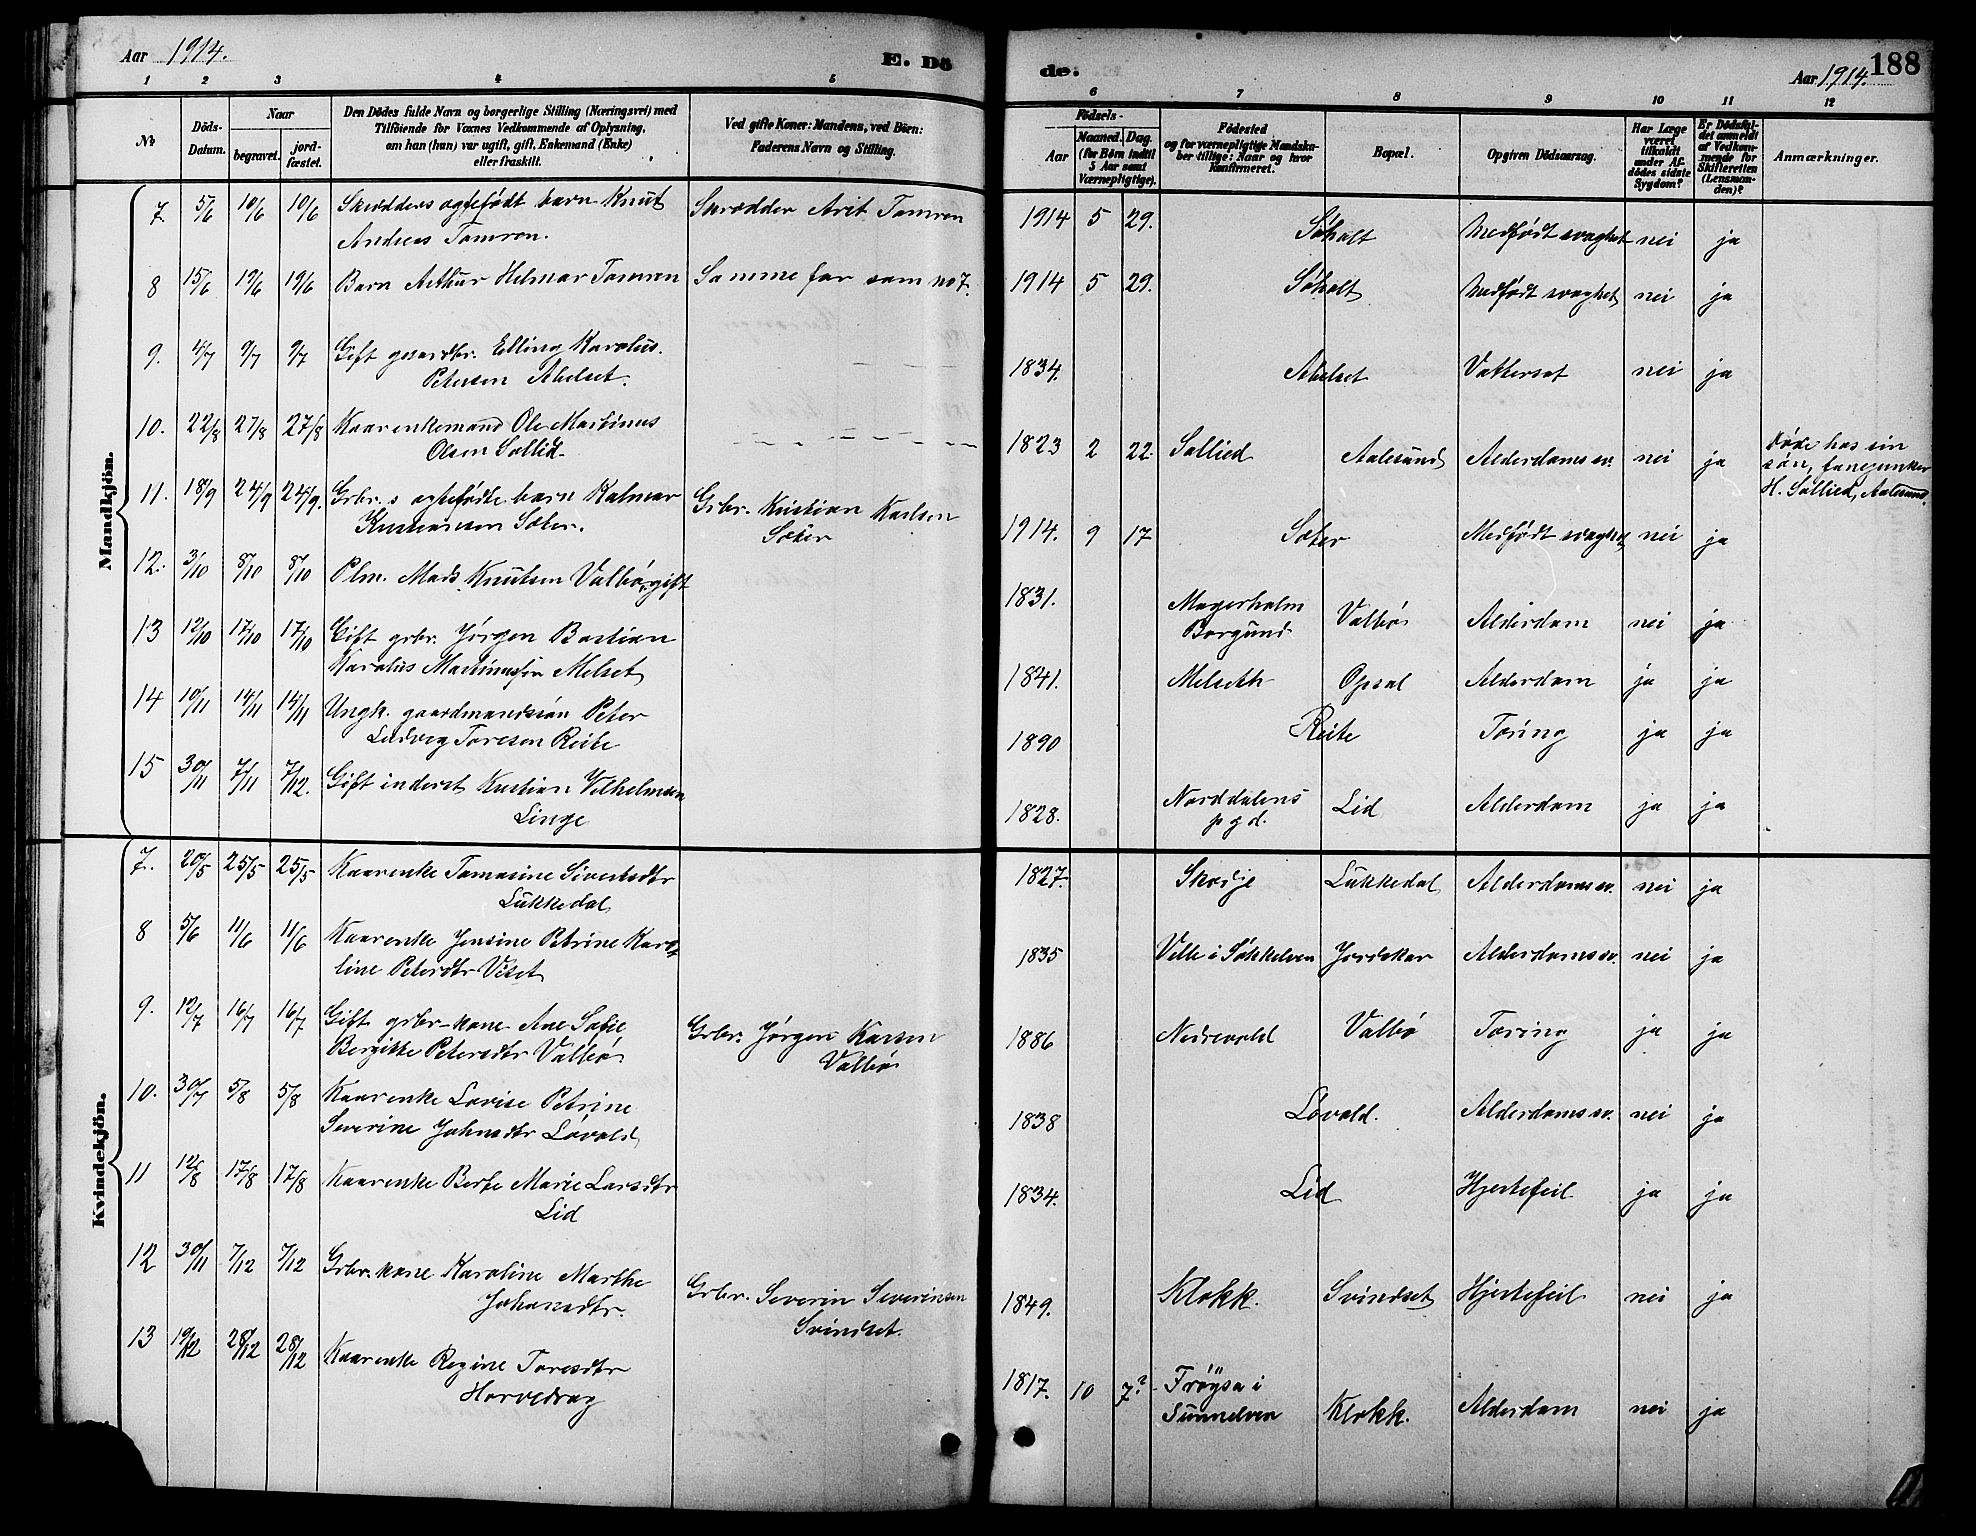 Aar 1914.
E. Dö
de.
Aar 1914.
188
1 2 3 4 5 6 7 8 9 10 11 12
No
Döds-
Datum.
Naar
begravet.
jord-
fæstet.
Den Dödes fulde Navn og borgerlige Stilling (Næringsvei) med
Tilföiende for Voxnes Vedkommende af Oplysning,
om han (hun) var ugift, gift, Enkemand (Enke)
eller fraskilt.
Ved gifte Koner: Mandens, ved Börn:
Faderens Navn og Stilling.
Födsels-
Aar
Maaned. Dag.
(for Börn indtil
5 Aar samt
Værnepligtige).
Födested
og for værnepligtige Mandska-
ber tillige: Naar og hvor
Konfirmeret.
Bopæl.
Opgiven Dödsaarsag.
Har Læge
været
tilkaldt
under Af-
dödes sidste
Sygdom?
Er Dödsfal-
det anmeldt
af Vedkom-
mende for
Skifteretten
(Lensman-
den)?
Anmærkninger.
Mandkjön.
7. 5/6 10/6 10/6 Skrædders egtefødt barn Knut Skrædder Arit Tomren 1914 5 29. Søholt Medfødt svaghet nei ja
Andreas Tomren.
8 15/6 19/6 19/6 Barn Arthur Helmar Tomren Samme far som no 7. 1914 5 29. Søholt Medfødt svaghet nei ja
9. 4/7 9/7 9/7 Gift gaardbr. Elling Karolus 1834. Abelset Vattersot nei ja
Petersen Abelset.
10. 22/8 27/8 27/8 Kaarenkemand Ole Martinus 1823 2 22. Sollied Aalesund Alderdomssv. nei ja Døde hos sin
Olsen Sollid
søn,
H. Sollied, Aalesund.
11. 18/9 24/9 24/9. Grbr.s egtefødte barn Kalmar Grbr. Kristian Karlsen 1914. 9 17 Sæter Medfødt svaghet nei ja
Kristiansen Sæter. Sæter
12. 3/10 8/10 8/10 Plm. Mads Knutsen Valbø, gift 1831. Magerholm Valbø Alderdom nei ja
Borgund
13 12/10 17/10 17/10 Gift grbr. Jørgen Bastian 1841. Melseth Opsal Alderdom ja ja
Karolus Martinussøn Melset
14 10/11 14/11 14/11 Ungk. gaardmandssøn Peter 1890 Reite Tæring ja ja
Ludvig Toresen Reite
15 30/11 7/11 7/12. Gift inderst Kristian Vilhelmsen 1828. Norddalens Lid Alderdom ja ja
Linge pgd.
Kvindekjön.
7. 20/5 25/5 25/5 Kaarenke Tomasine Sivertsdtr 1827. Skodje Lukkedal Alderdomssv. nei ja
Lukkedal
8 5/6 11/6 11/6 Kaarenke Jensine Petrine Karo- 1835 Velle i Søkkelven Jordskar Alderdomssv. nei ja
line Petersdtr Viset
9. 12/7 16/7 16/7 Gift grbr-kone Ane Sofie Grbr. Jørgen Karsen 1886 Nedrevold Valbø Tæring ja ja
Bergitte Petersdtr Valbø Valbø
10. 30/7 5/8 5/8 Kaarenke Lovise Petrine 1838 Løvold. Alderdomssv. nei ja
Severine Johnsdtr Løvold
11 12/8 17/8 17/8 Kaarenke Berte Marie Larsdtr 1834. Lid Hjertefeil ja ja
Lid
12 30/11 7/12 7/12 Grbr.kone Karoline Marthe Grbr. Severin Severinsen 1849. Klokk. Svindset Hjertefeil nei ja
Johansdtr. Svindset.
13 19/12 28/12 28/12 Kaarenke Regine Toresdtr 1817. 10 7? Frøysa i Klokk. Alderdom nei ja
Horvedrag Sunnelven